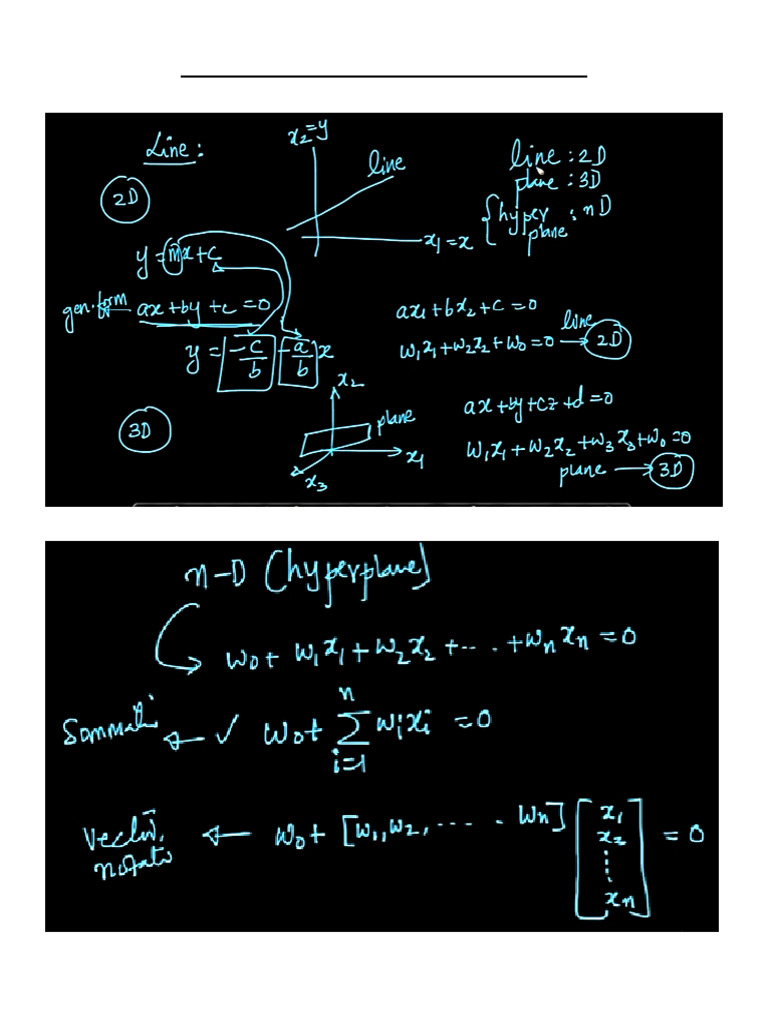 Line:
x₂=y
line
x₁=x
line : 2D
plane : 3D
{ hyper plane : nD
2D
y = mx+c
gen. form ax+by+c=0
y = -c/b -a/b x
ax₁+bx₂+c=0
w₁x₁+w₂x₂+w₀=0 → 2D
line
3D
x₂
plane
x₁
x₃
ax+by+cz+d=0
w₁x₁+w₂x₂+w₃x₃+w₀=0
plane → 3D
n-D (hyperplane)
w₀+ w₁x₁+w₂x₂+.. . . +wₙxₙ=0
Sommati ← ✓ w₀+ n∑i=1 wᵢxᵢ =0
Vector notato ← w₀+ [w₁,w₂, .... - wₙ] [x₁ x₂ ⋮ xₙ] = 0